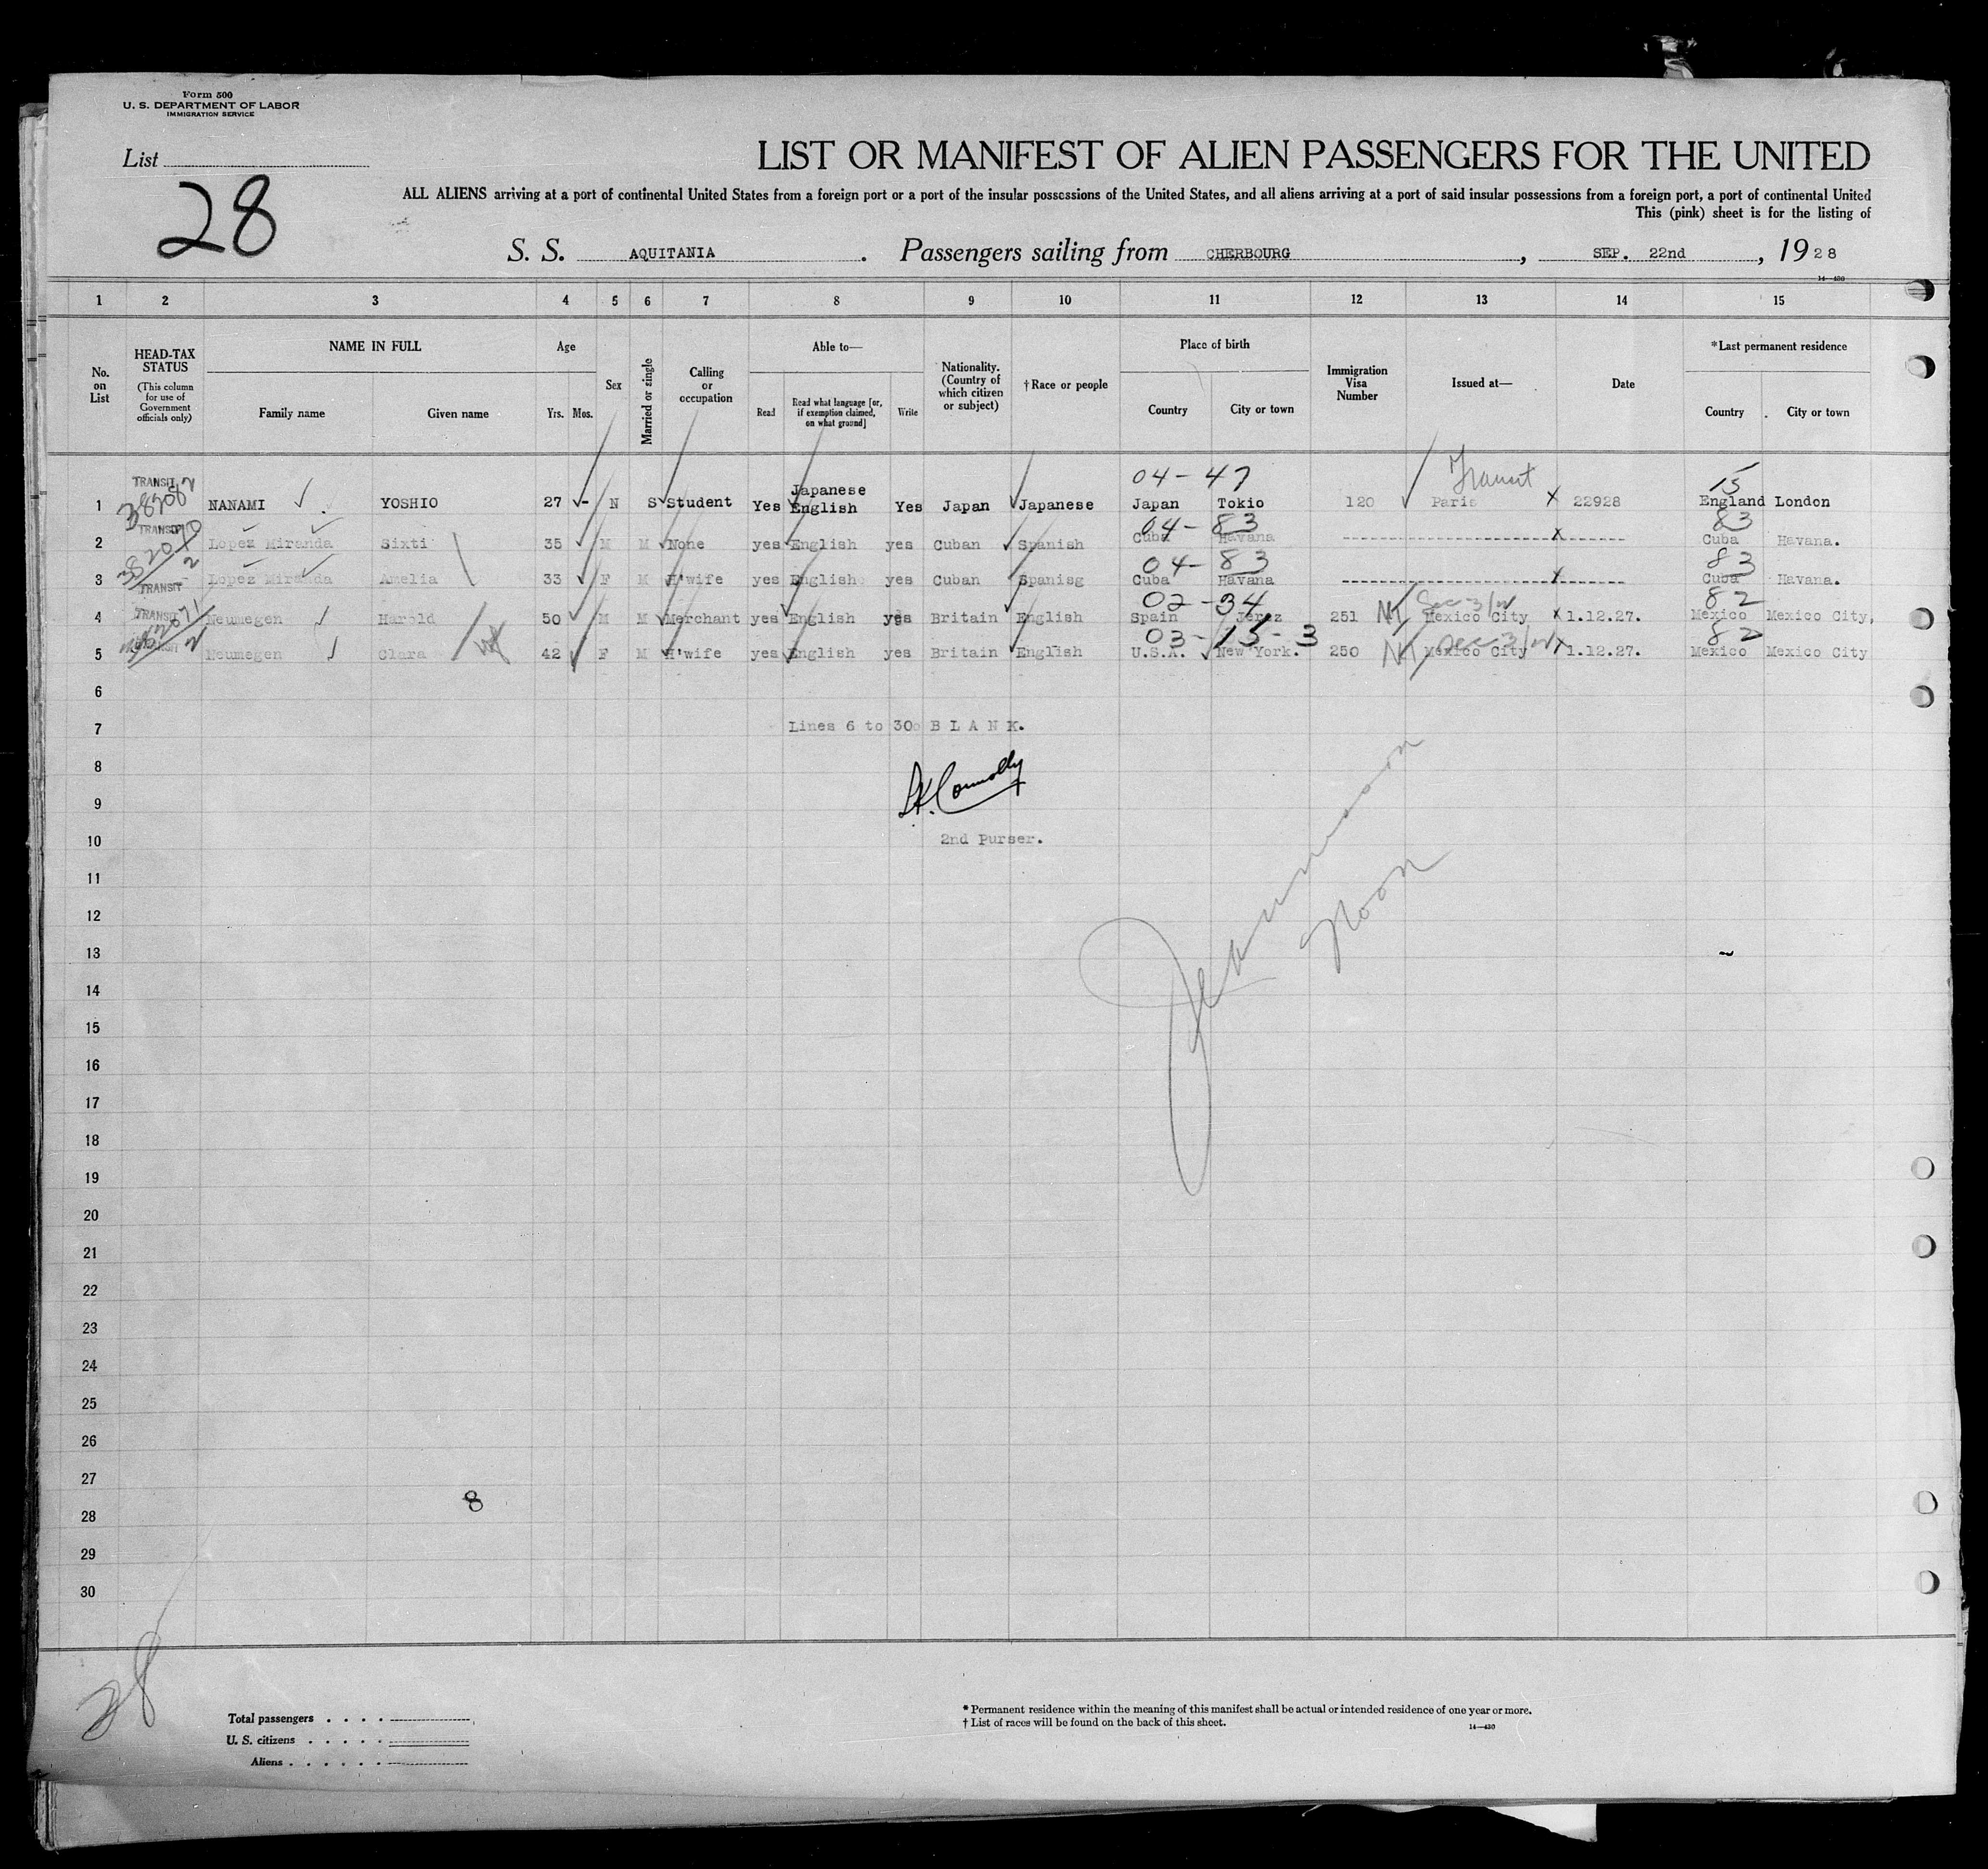 Form 500
U. S. DEPARTMENT OF LABOR
IMMIGRATION SERVICE
List
28
LIST OR MANIFEST OF ALIEN PASSENGERS FOR THE UNITED
ALL ALIENS arriving at a port of continental United States from a foreign port or a port of the insular possessions of the United States, and all aliens arriving at a port of said insular possessions from a foreign port, a port of continental United
This (pink) sheet is for the listing of
S. S. AQUITANIA. Passengers sailing from CHERBOURG, SEP. 22nd, 1928
14—430
1 2 3 4 5 6 7 8 9 10 11 12 13 14 15
No. on List
HEAD-TAX STATUS (This column for use of Government officials only)
NAME IN FULL
Family name Given name
Age
Yrs. Mos.
Sex
Married or single
Calling or occupation
Able to—
Read
Read what language [or, if exemption claimed, on what ground]
Write
Nationality. (Country of which citizen or subject)
† Race or people
Place of birth
Country City or town
Immigration Visa Number
Issued at—
Date
* Last permanent residence
Country City or town
TRANSIT 04-47 Transit 15
1 NANAMI YOSHIO 27 - N S Student Yes Japanese English Yes Japan Japanese Japan Tokio 120 Paris X 22928 England London
TRANSIT 04-83 83
2 Lopez Miranda Sixti 35 M M None yes English yes Cuban Spanish Cuba Havana X Cuba Havana.
04-83 83
3 TRANSIT Lopez Miranda Amelia 33 F M H'wife yes English yes Cuban Spanisg Cuba Havana X Cuba Havana.
TRANSIT 02-34 82
4 Neumegen Harold 50 M M Merchant yes English yes Britain English Spain Jerez 251 Mexico City X 1.12.27. Mexico Mexico City,
03-15-3 82
5 Neumegen Clara 42 F M H'wife yes English yes Britain English U.S.A. New York. 250 Mexico City X 1.12.27. Mexico Mexico City
6
7 Lines 6 to 30 B L A N K.
8
9
10 2nd Purser.
11
12
Noon
13
14
15
16
17
18
19
20
21
22
23
24
25
26
27
8
28
29
30
28
Total passengers
U. S. citizens
Aliens
* Permanent residence within the meaning of this manifest shall be actual or intended residence of one year or more.
† List of races will be found on the back of this sheet.
14—430